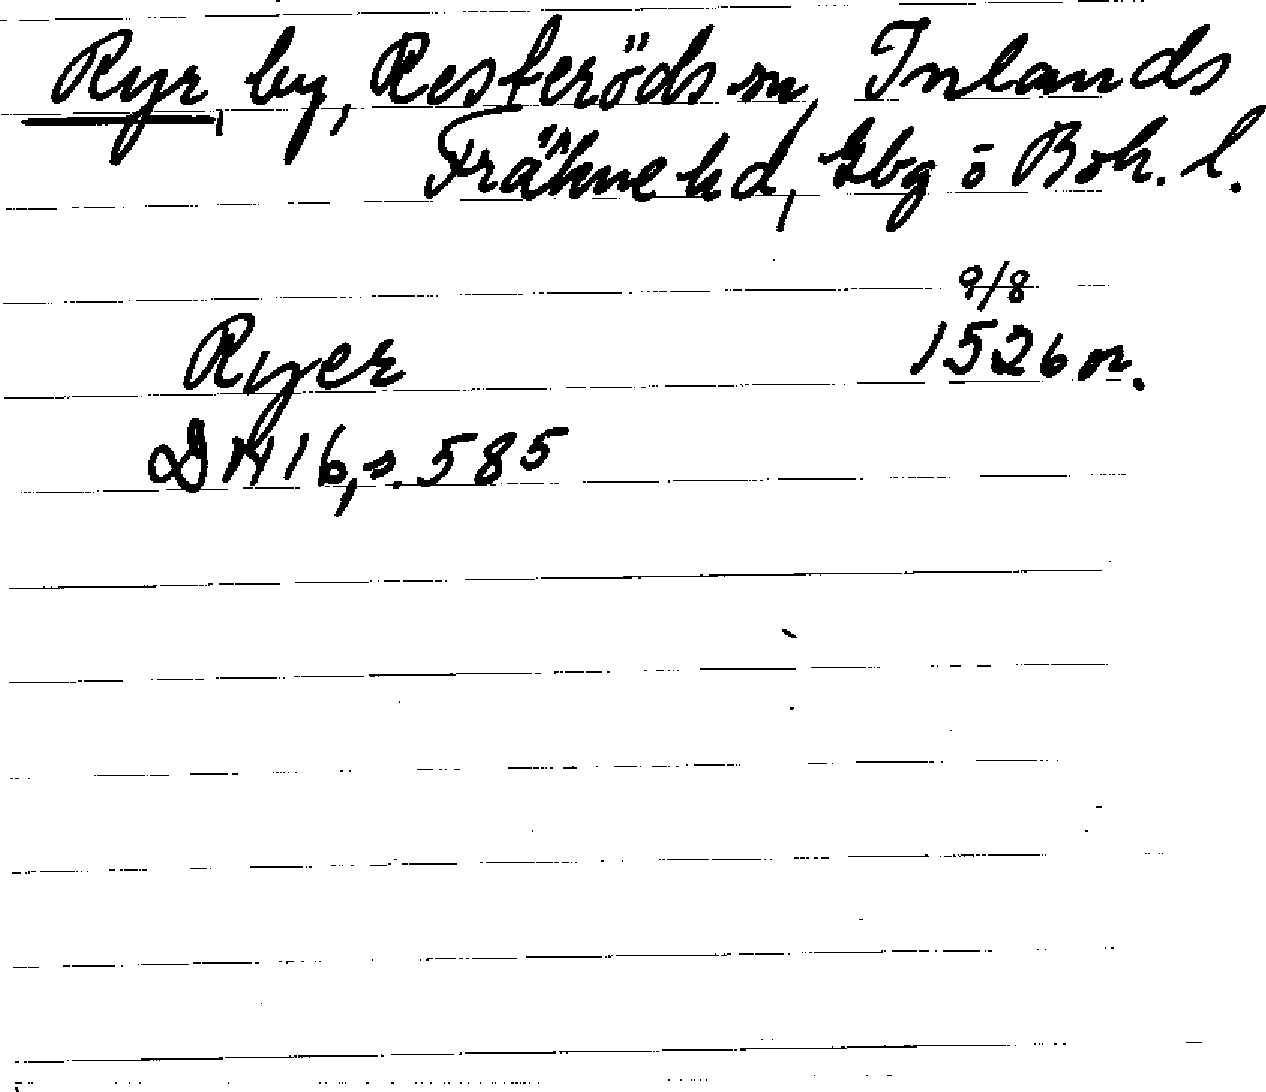 Ryr, by, Resteröds sn, Inlands
Fräkne hd, Gbg ō Boh. l.
9/8
Ryer 1526 or.
DN 16, s. 585